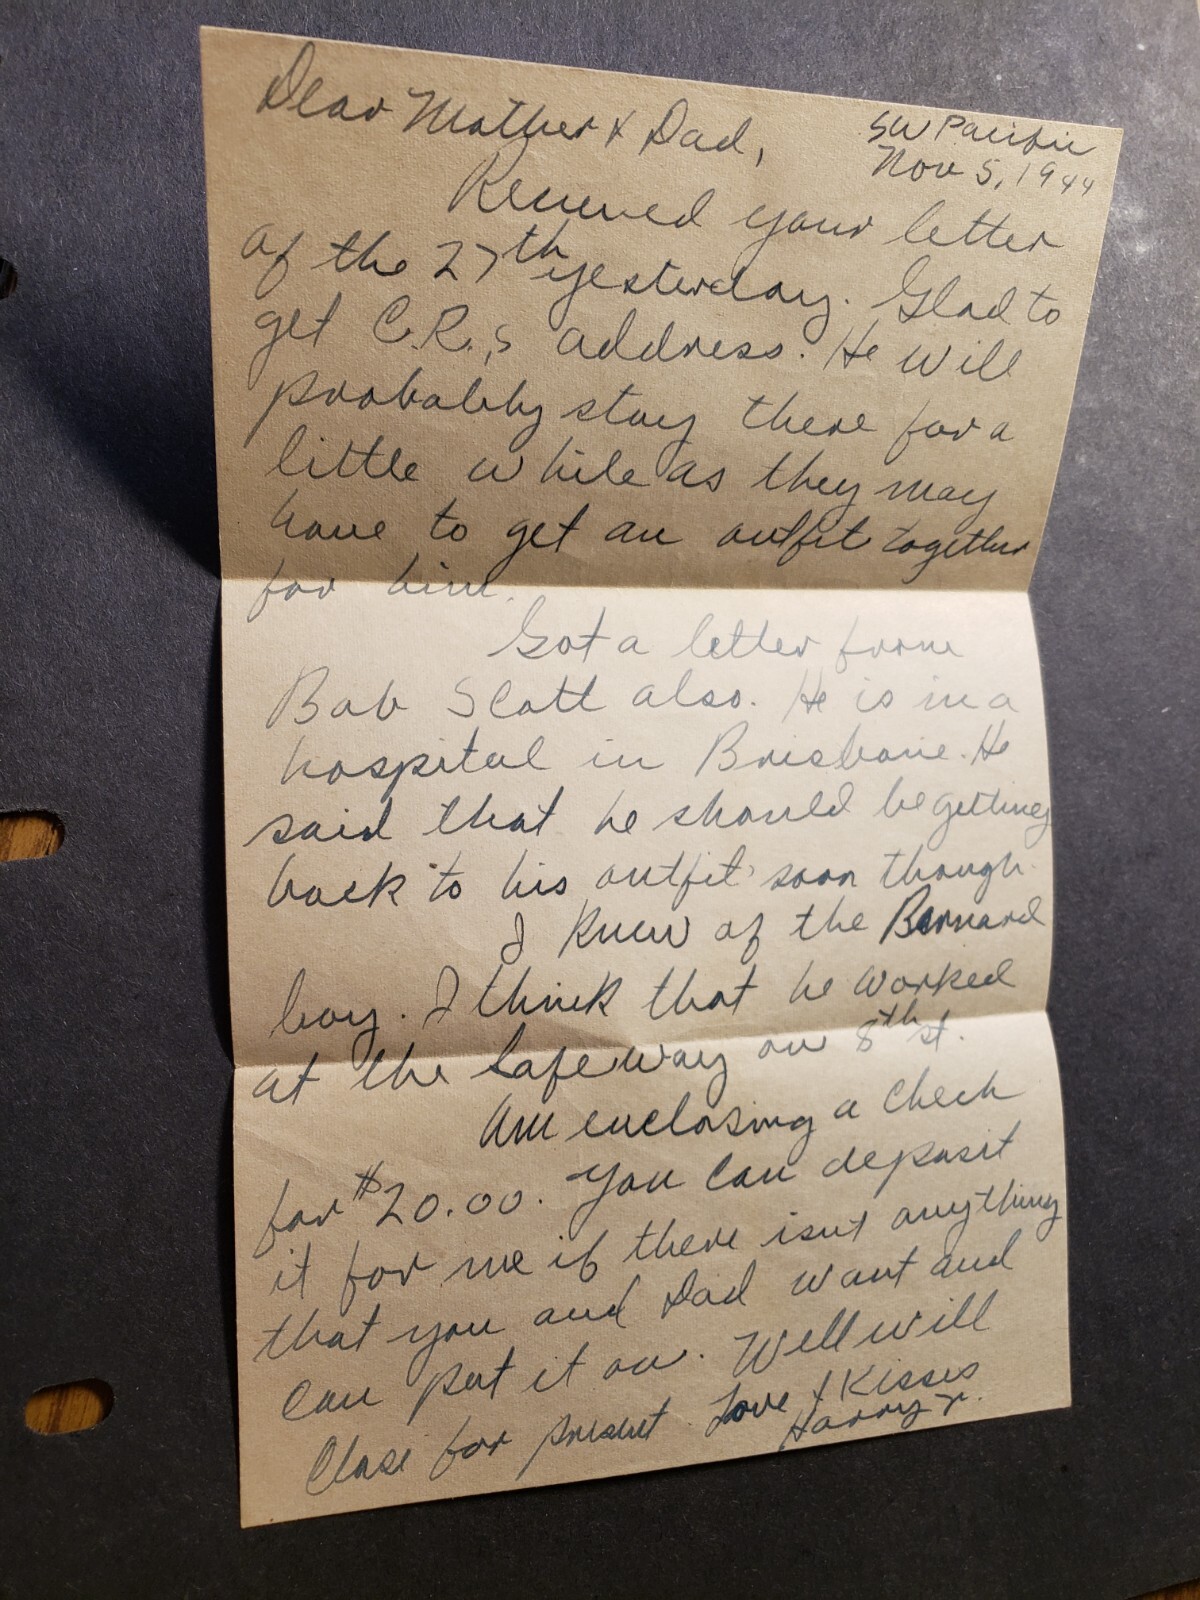 Dear Mother & Dad,
SW Pacific
Nov 5, 1944
Received your letter
of the 27th yesterday. Glad to
get C.R.,s address. He will
probably stay there for a
little while as they may
have to get an outfit together
for him.
Got a letter from
Bob Scott also. He is in a
hospital in Brisbane. He
said that he should be getting
back to his outfit soon though.
I knew of the Bernard
boy. I think that he worked
at the Safeway on 8th st.
Am enclosing a check
for $20.00. You can deposit
it for me if there isnt anything
that you and Dad want and
can put it on. Well will
close for present. Love & Kisses
Harry Jr.